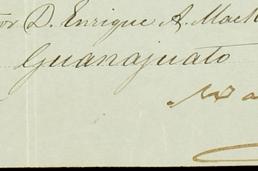 D. Enrique A. Mack
Guanajuato